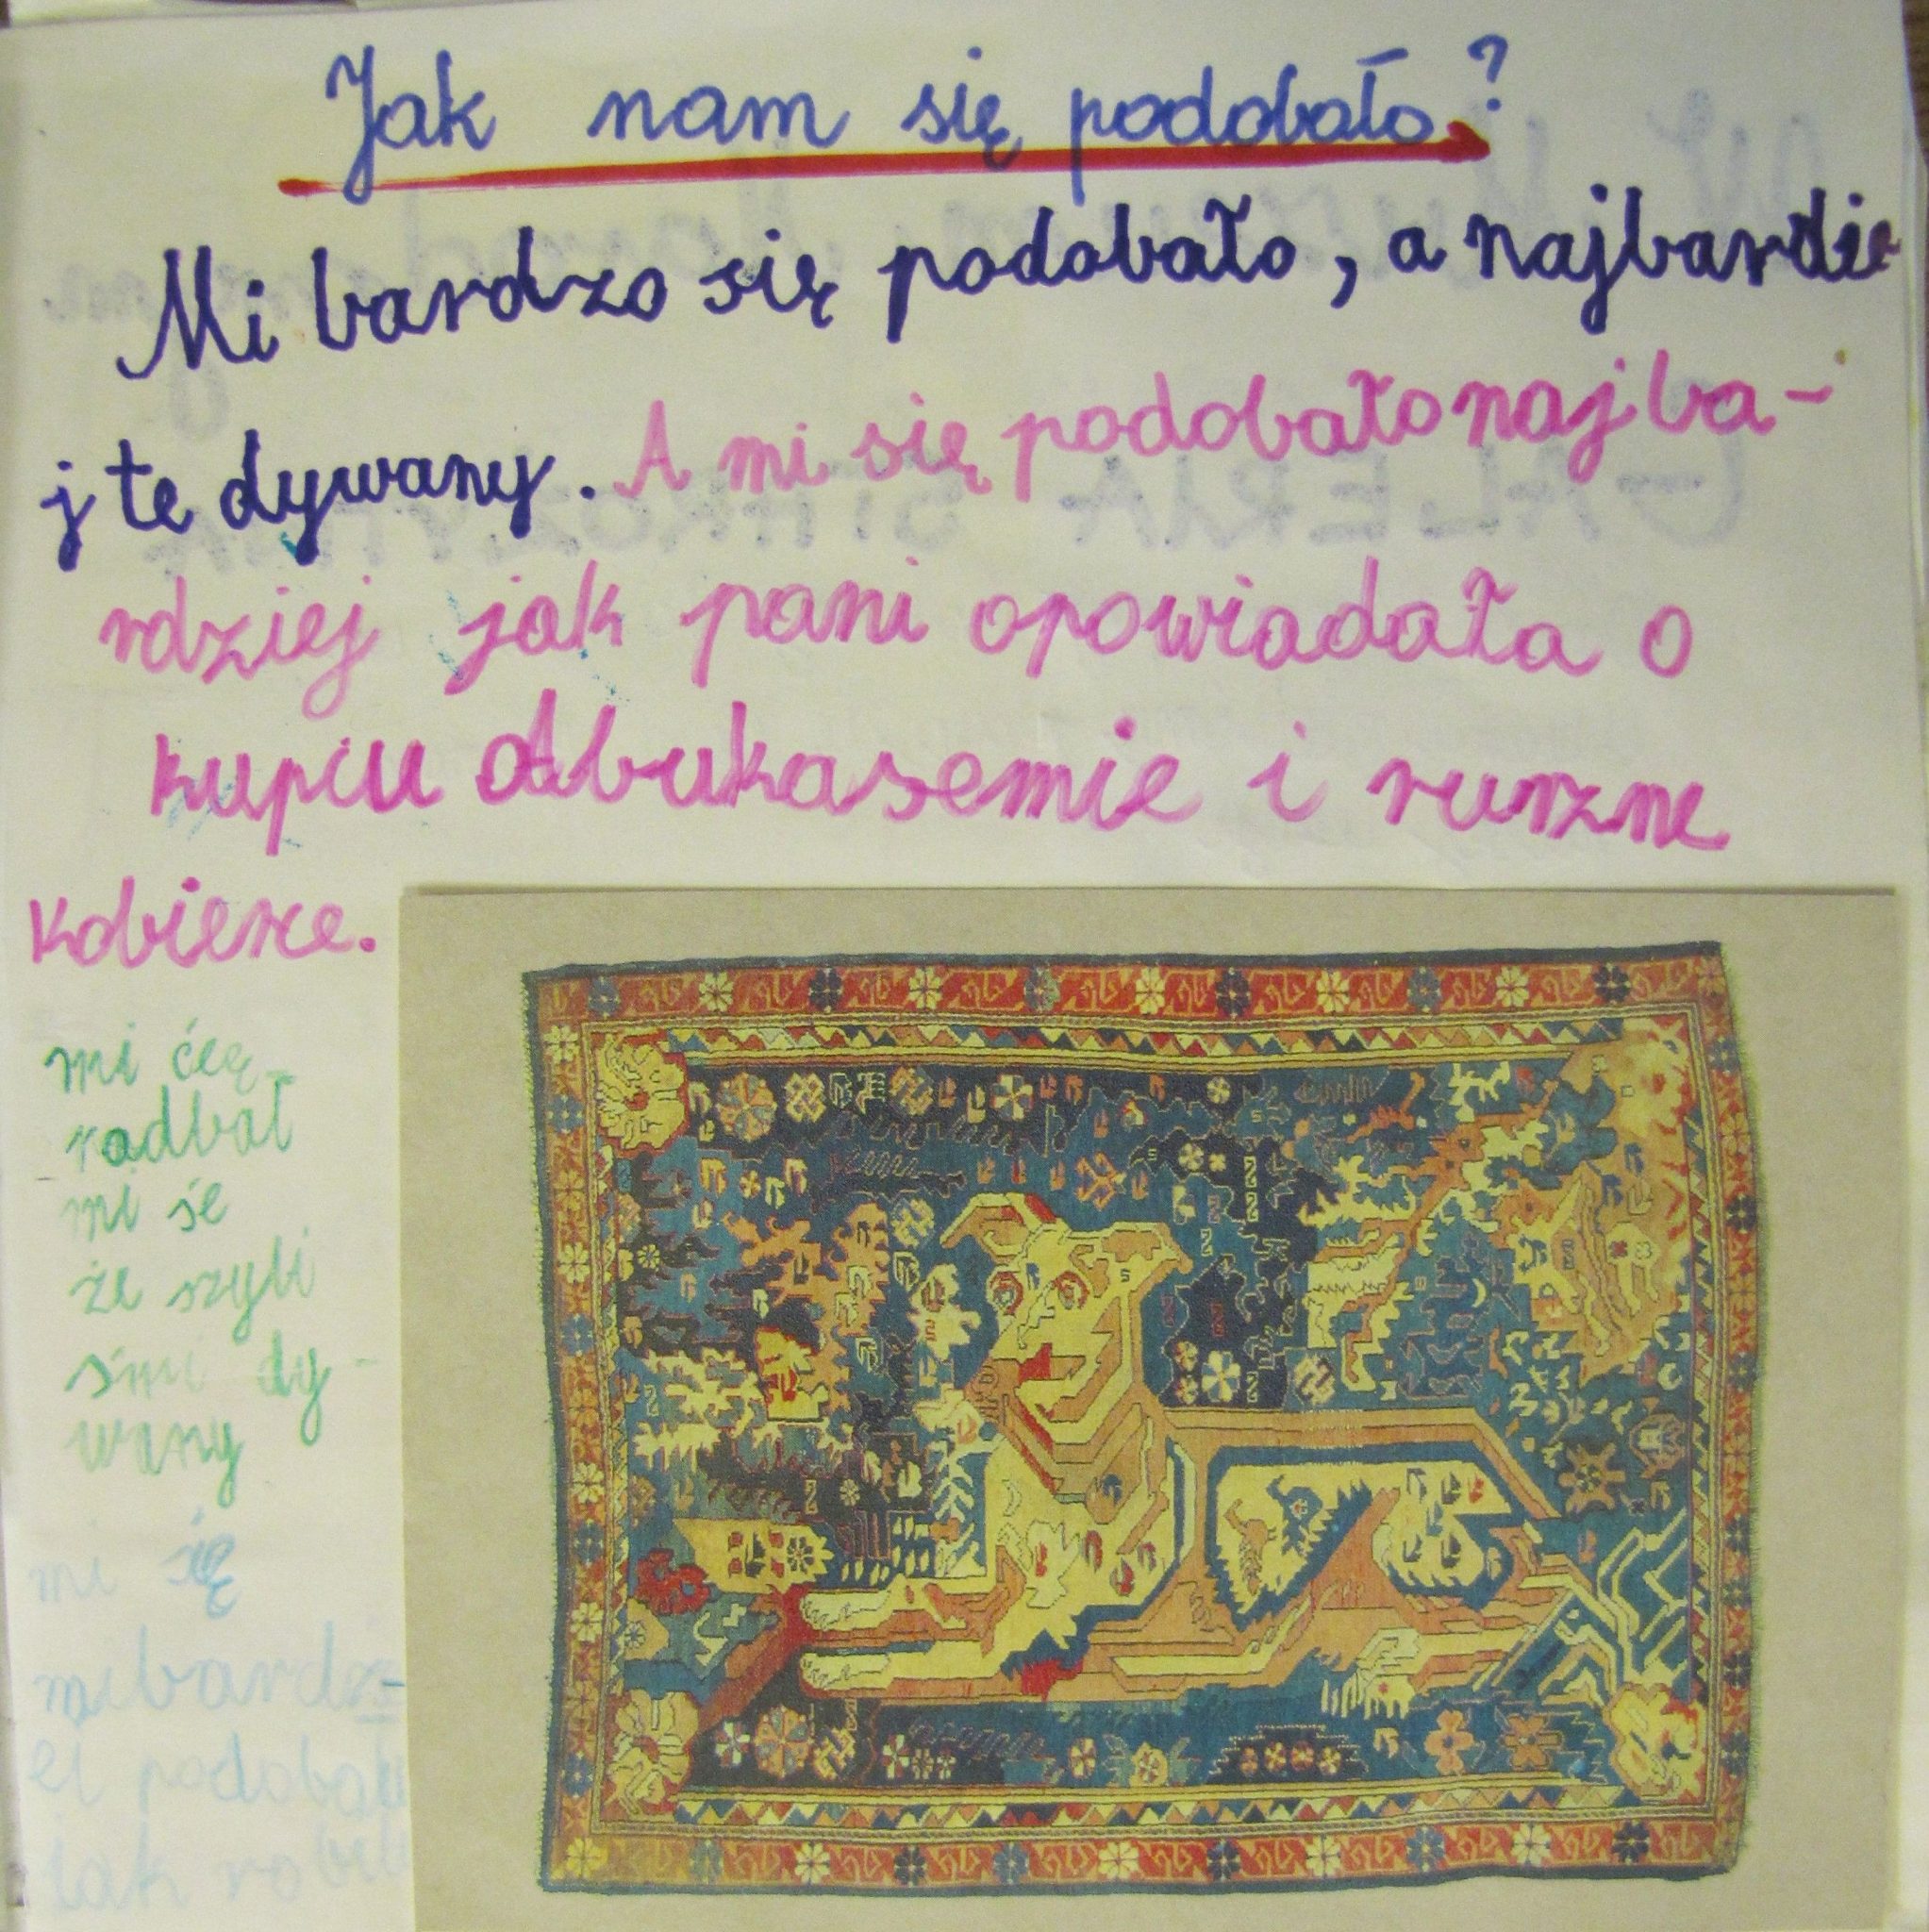 Jak nam się podobało?
Mi bardzo się podobało, a najbardzie
j te dywany. A mi się podobało najba-
rdziej jak pani opowiadała o
kupcu Abukasemie i rurzne
kobierce.
mi ćię
radbał
mi śe
że szyli
śmi dy-
wany
mi się
bardz-
podobał
jak robili